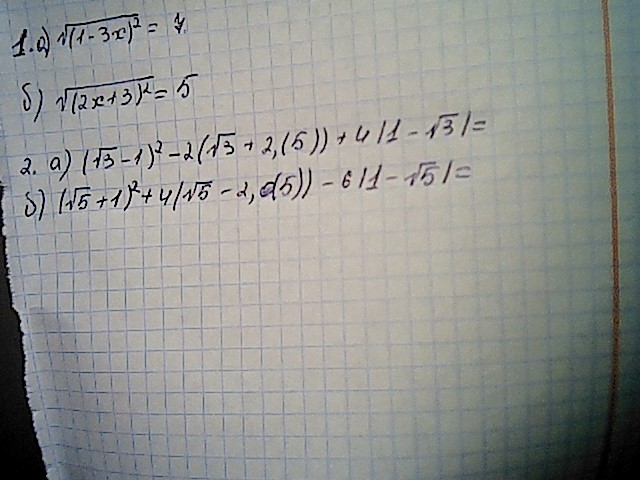 1. а) √(1-3x)² = 7
б) √(2x+3)² = 5
2. а) (√3-1)² - 2(√3 + 2,(5)) + 4|1 - √3| =
б) (√5+1)² + 4(√5 - 2,0(5)) - 6|1 - √5| =